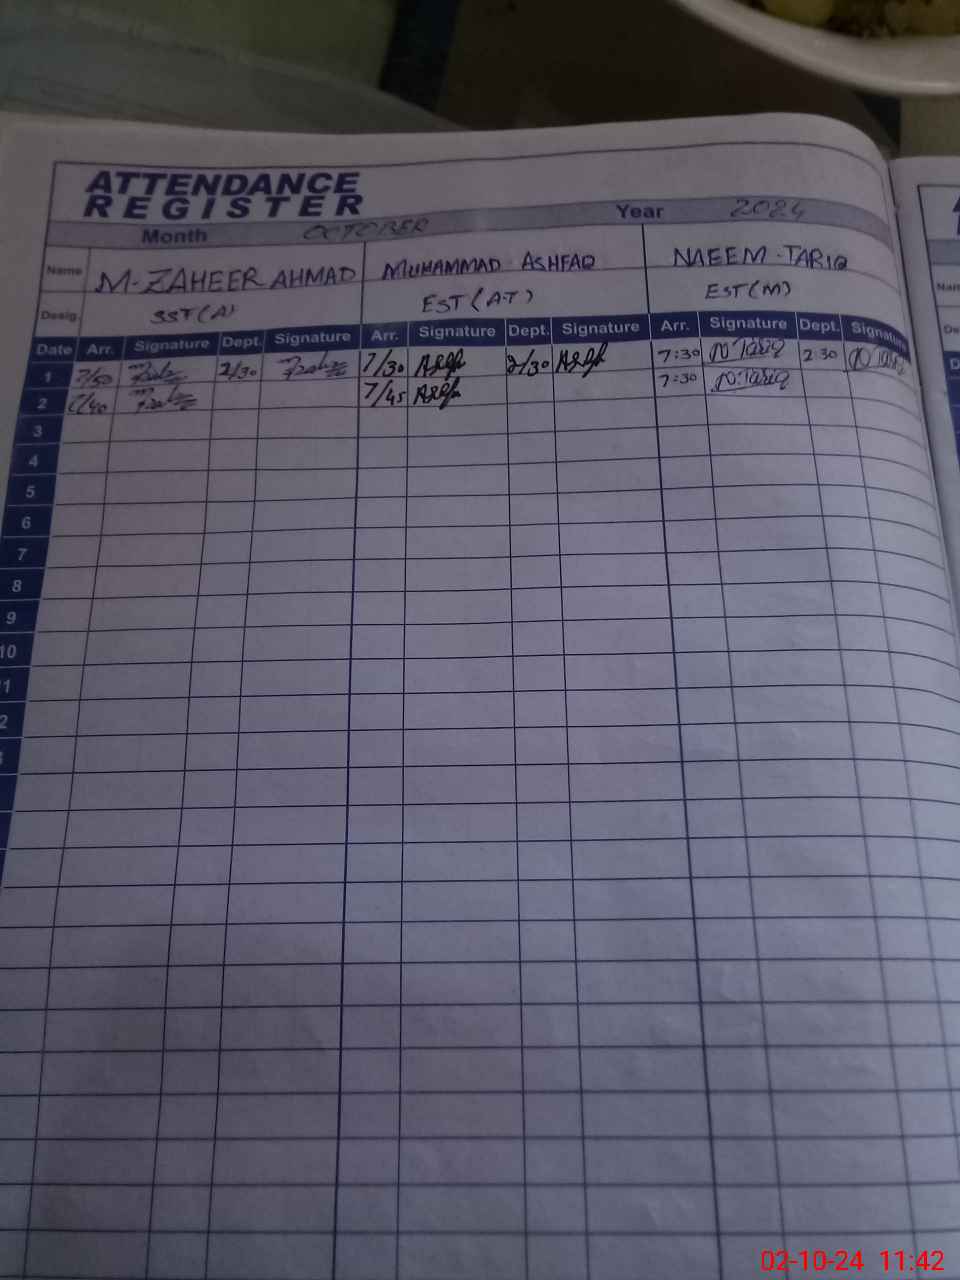 ATTENDANCE
REGISTER
Month OCTOBER Year 2024
Name M-ZAHEER AHMAD MUHAMMAD ASHFAQ NAEEM-TARIQ
Desig. SST(A) EST(AT) EST(M)
Date Arr. Signature Dept. Signature Arr. Signature Dept. Signature Arr. Signature Dept. Signature
1 7/30 2/30 7/30 2/30 7:30 N.Tariq 2:30 N.Tariq
2 7/40 7/45 7:30 N.Tariq
3
4
5
6
7
8
9
10
02-10-24 11:42